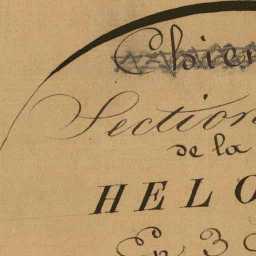 Chien
Section
de la
HELO
En 3